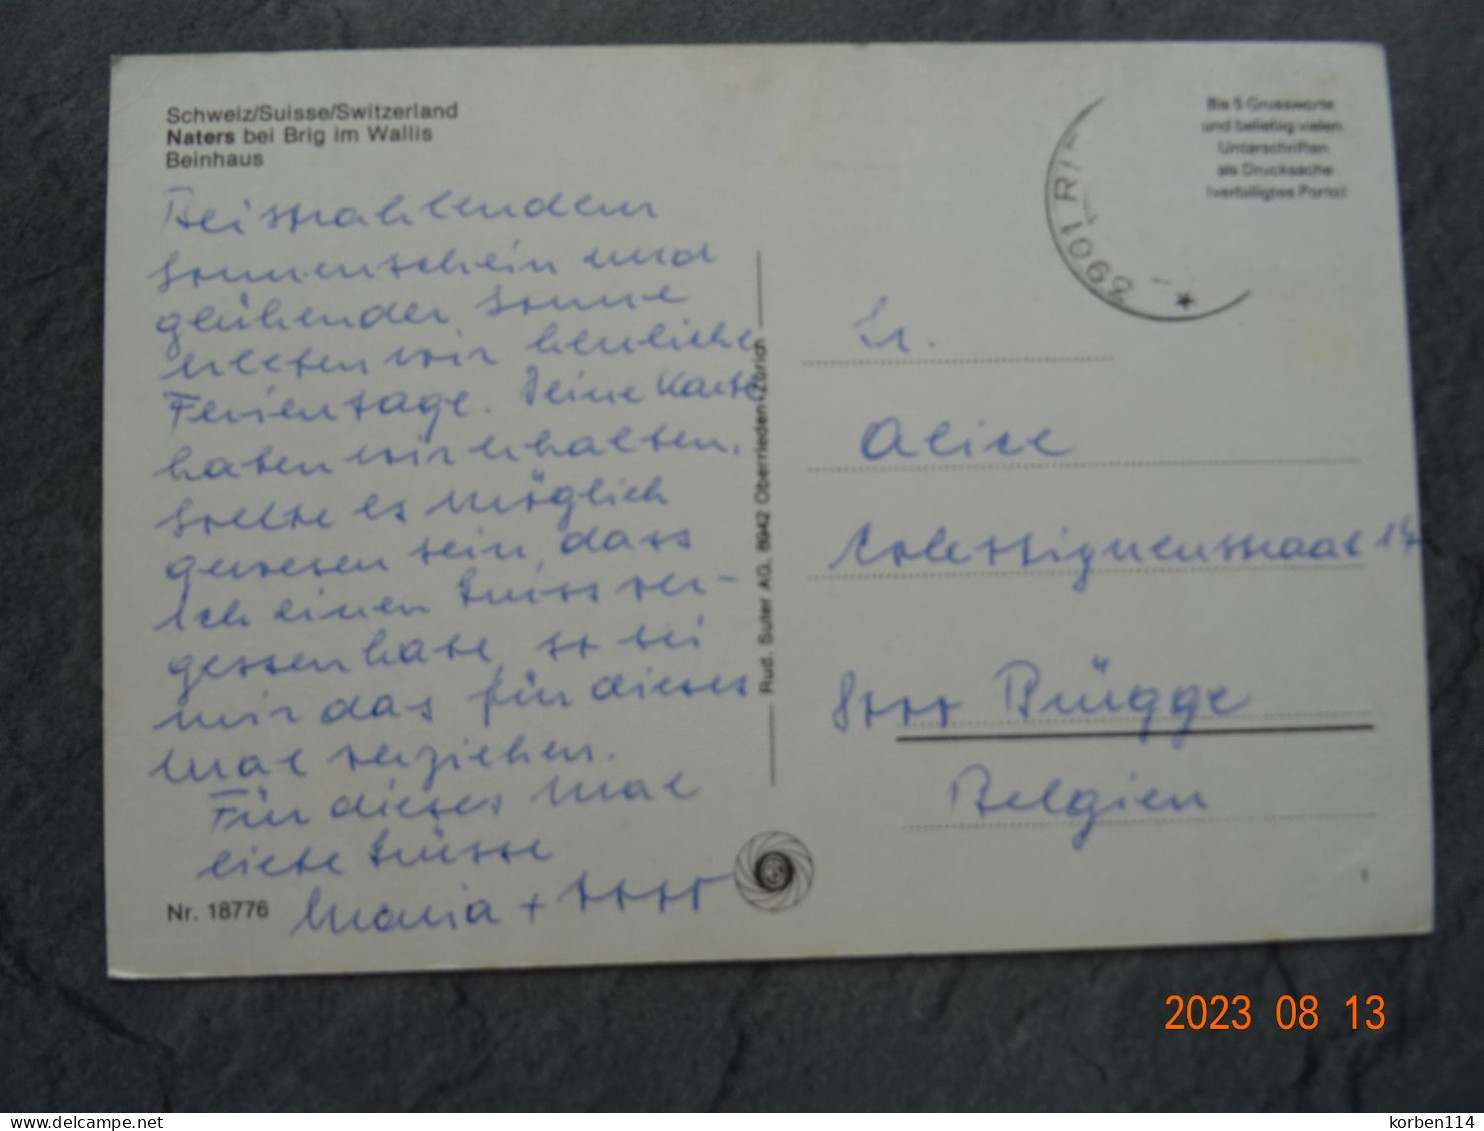 Schweiz/Suisse/Switzerland
Naters bei Brig im Wallis
Beinhaus
Bei strahlendem
Sonnenschein und
glühender Sonne
erleben wir herrliche
Ferientage. Deine Karte
haben wir erhalten.
Sollte es möglich
gewesen sein, dass
ich einen Gruss ver-
gessen habe, so sei
mir das für dieses
Mal verziehen.
Für dieses Mal
liebe Grüsse
Maria +
Nr. 18776
Rud. Suter AG, 8942 Oberrieden-Zürich
Bis 5 Grussworte
und beliebig vielen
Unterschriften
als Drucksache
(verbilligtes Porto)
Sr.
Alice
8000 Brügge
Belgien
2023 08 13
delcampe.net
korben114